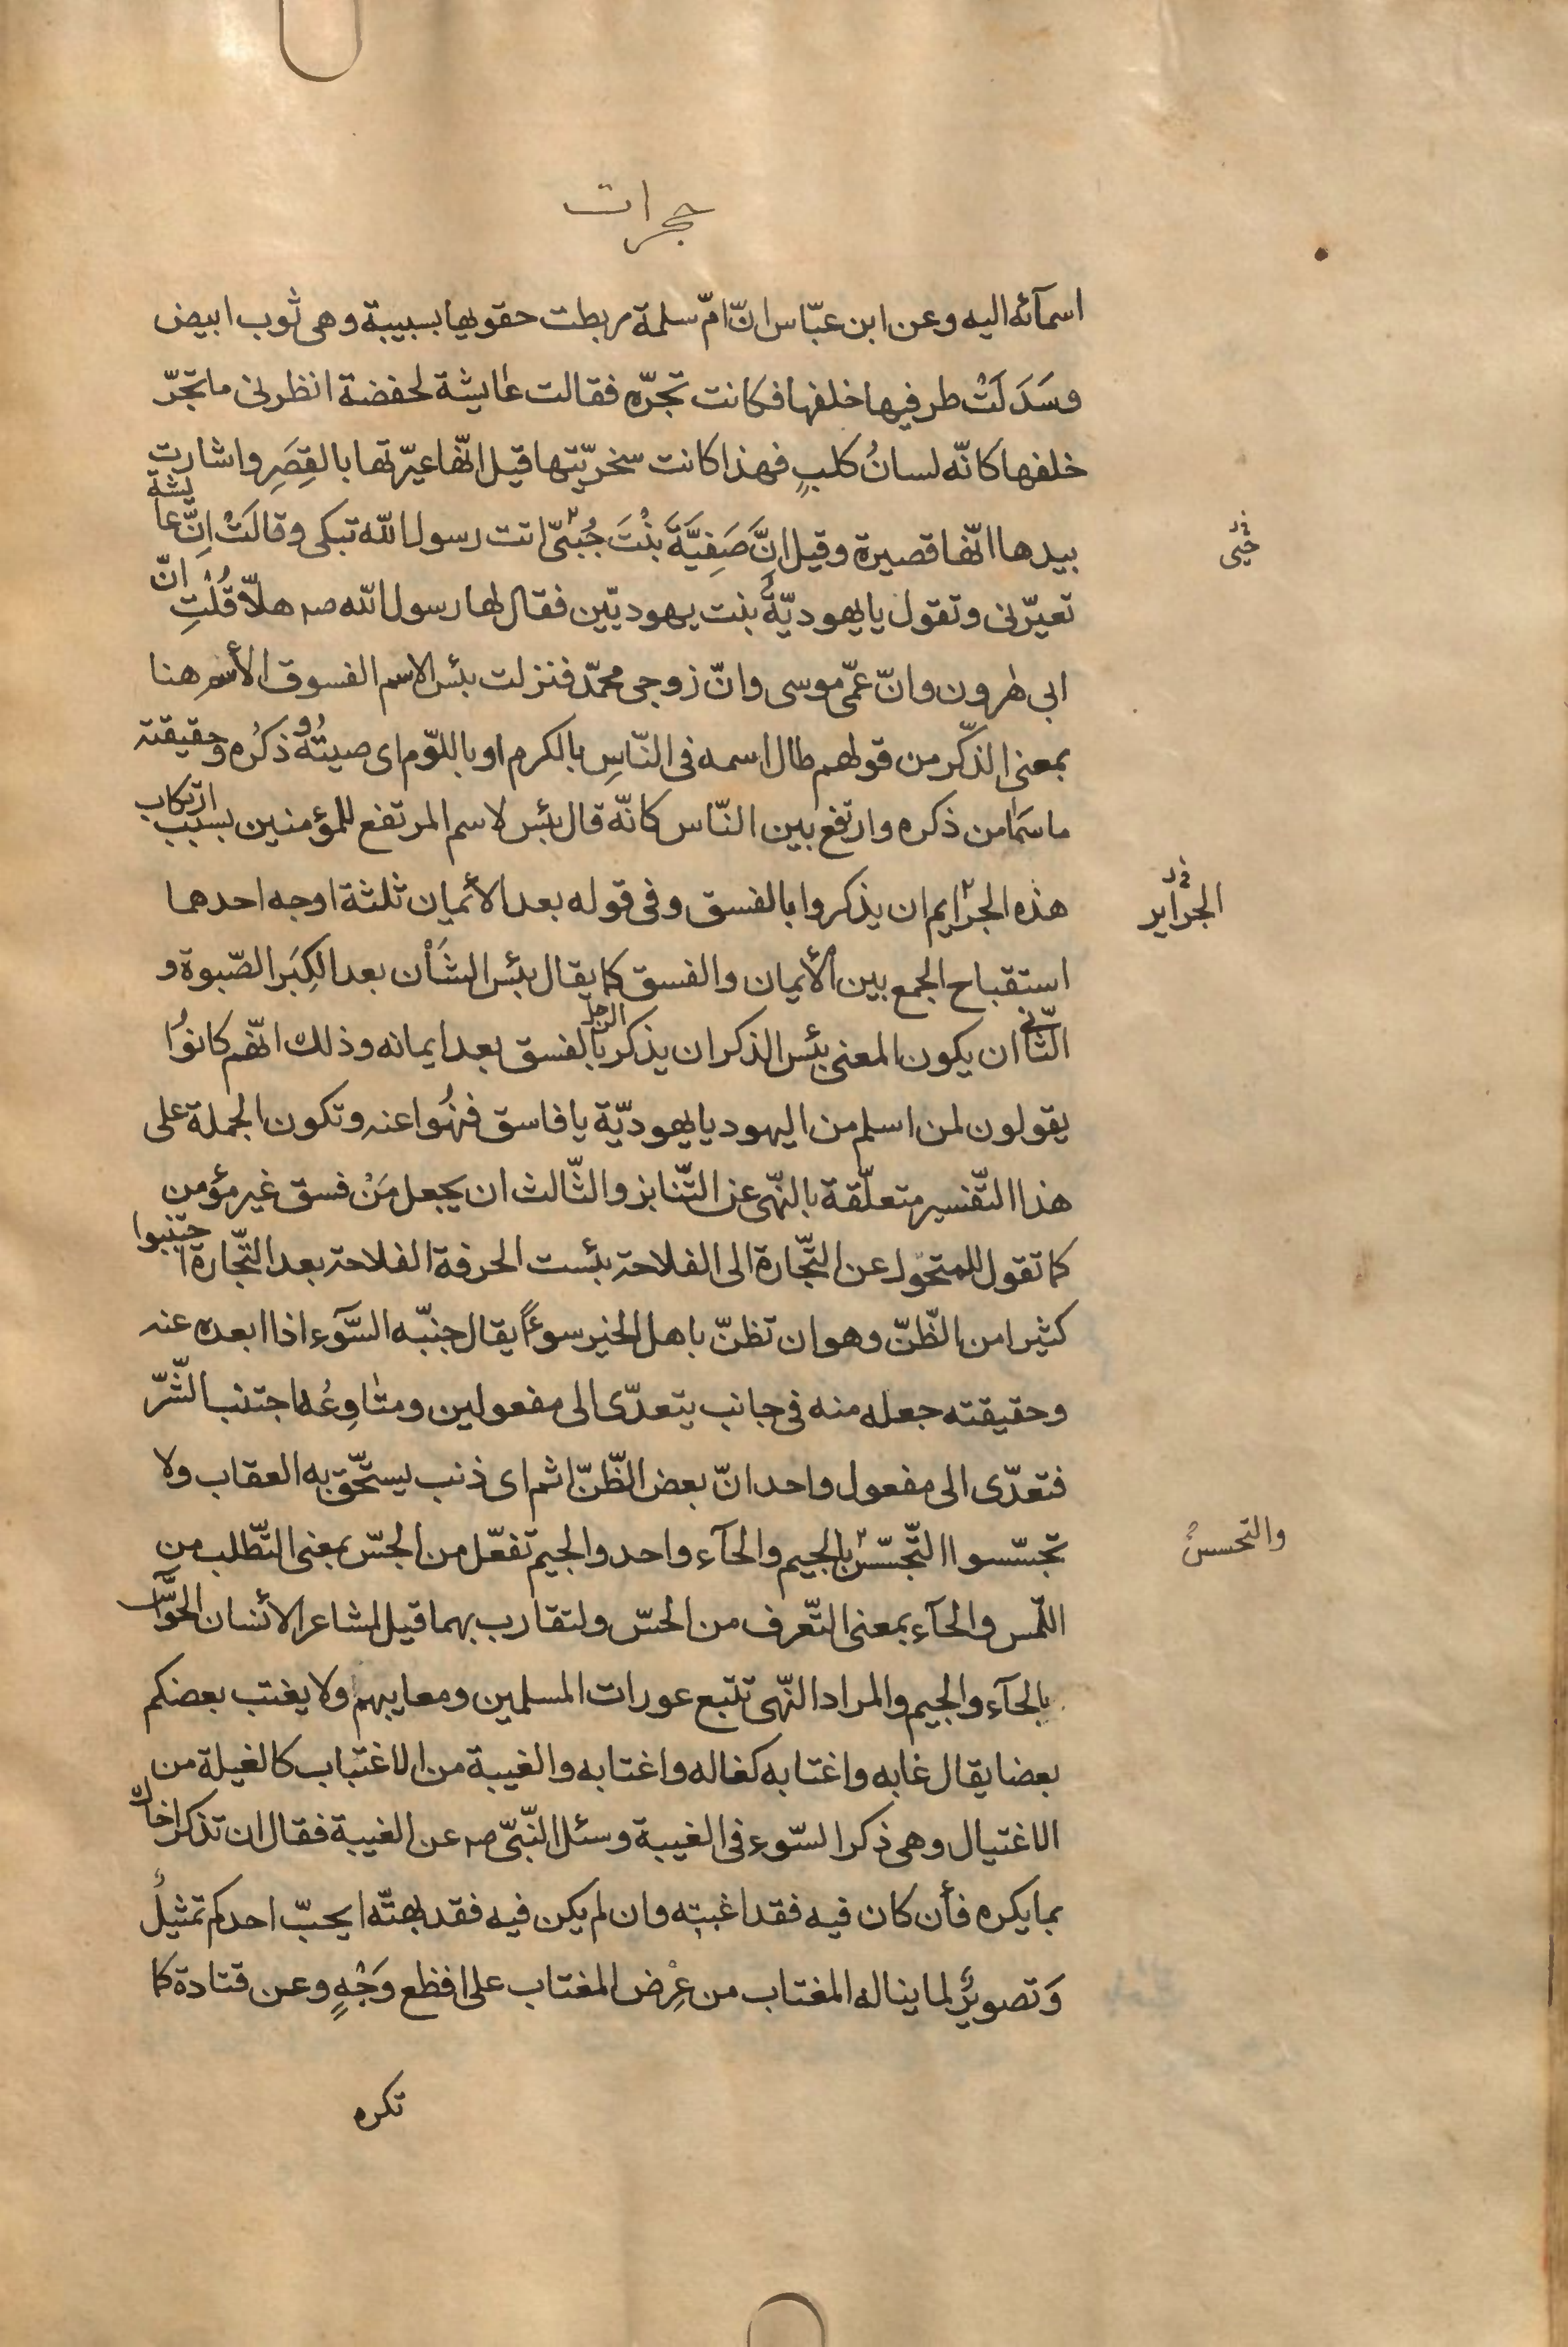 حجرات
اسمآئه اليه وعن ابن عبّاس انّ امّ سلمة ربطت حقويها بسبيبة وهى ثوب ابيض
وسَدَلَتْ طرفيها خلفها فكانت تجرّه فقالت عايشة لحفضة انظرنى ماتجرّ
خلفها كانّه لسانُ كلبٍ فهذا كانت سخريّتها قيل انّها عيّرتها بالقِصَرِ واشارت
بيدها انّها قصيرة وقيل انَّ صَفِيَّةَ بنْتَ جُبَىّ اتت رسول اللّه تبكى وقالَتْ اِنّ عايشة
حُيَى
تعيّرنى وتقول يا يهوديّةُ بنت يهوديّين فقال لها رسول اللّه صہ هلّا قُلْتِ انّ
ابى هرون وانّ عمّى موسى وانّ زوجى محمّد فنزلت بئس الاسم الفسوق الأسم هنا
بمعنى الذّكر من قولهم طال اسمه فى النّاسِ بالكرم او باللوّم اى صيتُهُ وذكرُه وحقيقته
ماسَمَا من ذكره وارتفع بين النّاس كانّه قال بئس لاسم المرتفع للمؤمنين بسبب ارتكاب
هذه الجرايم ان يذكروا بالفسق وفى قوله بعد الأئمان ثلثة اوجه احدهما
الجراير
استقباح الجمع بين الأيمان والفسق كما يقال بئس الشَأْن بعد الكِبَر الصّبوة و
الثّانى ان يكون المعنى بئس الذكر ان يذكر الرجل بالفسق بعد ايمانه وذلك انّهم كانوُا
يقولون لمن اسلم من اليهود يا يهوديّة يا فاسق فنهُوا عنه وتكون الجملة على
هذا التّفسير متعلّقة بالنّهى عن التّنابز والثّالث ان يجعل مَنْ فسق غير مؤمن
كما تقول للمتحوّل عن التّجارة الى الفلاحة بئست الحرفة الفلاحة بعد التّجارة اجتنبوا
كثيرا من الظّنّ وهو ان تظنّ باهل الخير سوءًا يقال جنبّه السّوَء اذا ابعده عنه
وحقيقته جعله منه فى جانب يتعدّى الى مفعولين ومتاوِعُه اجتنب الشّرّ
فتعدّى الى مفعول واحد انّ بعض الظّنّ اثم اى ذنب يستحّق به العقاب ولا
تجسّسوا التّجسّسُ بالجيم والحآء واحد والجيم تفعّل من الجسّ بمعنى التّطلب من
والتحسسُ
اللّمس والحآء بمعنى التّعرف من الحسّ ولتقارب بهما قيل لمشاعر الأنسان الحوآسّ
بالحآء والجيم والمراد النّهى تتبع عورات المسلمين ومعايبهم ولا يغتب بعضكم
بعضا يقال غابه واغتابه كغاله واغتابه والغيبة من الاغتباب كالغيلة من
الاغتيال وهى ذكر السّوء فى الغيبة وسئل النّبىّ صہ عن الغيبة فقال ان تذكر اخاك
بما يكره فأن كان فيه فقد اغبته وان لم يكن فيه فقد بهتّه ايحبّ احدكم تمثيلُ
وَتصويرٌ لما يناله المغتاب من عِرْض المغتاب على افظع وَجْهٍ وعن قتادة كما
تكره